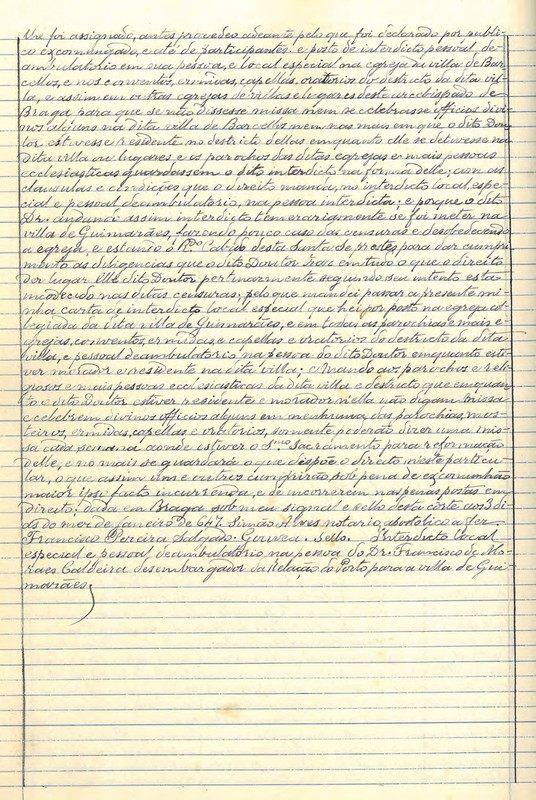 lhe foi assignado, antes procedeo adeante pelo que foi declarado por publi-
co excomungado, e até de participantes: e posto de interdicto pessoal, de-
ambulatorio em sua pessoa, e local especial na egreja da villa de Bar-
cellos, e nos conventos, ermidas, capellas, oratorios do destricto da dita vil-
la, e assim em outras egrejas de villas e lugares deste arcebispado de
Braga para que se não dissesse missa nem se celebrasse officios divi-
nos alguns na dita villa de Barcellos nem nas mais em que o dito Dou-
tor estivesse e residente, no destricto dellas emquanto elle se detivesse na
dita villa ou lugares e os parochos das ditas egrejas e mais pessoas
ecclesiasticas guardassem o dito interdicto na forma delle, com as
clausulas e condições que o direito manda, no interdicto local, espe-
cial e pessoal deambulatorio, na pessoa interdicta; e porque o dito
Dr. andando assim interdicto temerariamente se foi meter na
villa de Guimarães, fazendo pouco caso das censuras e desobedecendo
a egreja, e estando o R.do Cabido desta Santa Sé prestes para dar cumpri-
mento as diligencias que o dito Doutor traz em tudo o que o direito
der lugar elle dito Doutor pertinazmente seguindo seu intento está
incorrecido nas ditas censuras; pelo que mandei passar a presente mi-
nha carta de interdicto local especial que hei por posto na egreja col-
legiada da dita villa de Guimarães, e em todas as parochias e mais e-
grejas, conventos, ermidas e capellas e oratorios do destricto da dita
villa, e pessoal deambulatorio na pessoa do dito Doutor emquanto esti-
ver morador e residente na dita villa; e mando aos parochos e reli-
giosos e mais pessoas ecclesiasticas da dita villa e destricto que emquan-
to o dito Doutor estiver residente e morador nella não digam missa
e celebrem divinos officios alguns em nenhuma das parochias, mos-
teiros, ermidas, capellas e oratorios, somente poderão dizer uma mis-
sa cada semana aonde estiver o S.mo Sacramento para reformação
delle, e no mais se guardará o que dispõe o direito neste particu-
lar, o que assim uns e outros cumprirão sob pena de excomunhão
maior ipso facto incurrenda, e de incorrerem nas penas postas em
Direito; dada em Braga sob meu signal e sello desta corte aos 3 di-
as do mez de janeiro de 647. Simão Alvres notario apostolico a fez.
Francisco Pereira Salgado. Gouvea. Sello. Interdicto local
especial e pessoal deambulatorio, na pessoa do Dr. Francisco de Mo-
raes Caldeira desembargador da Relação do Porto para a villa de Gui-
marães.